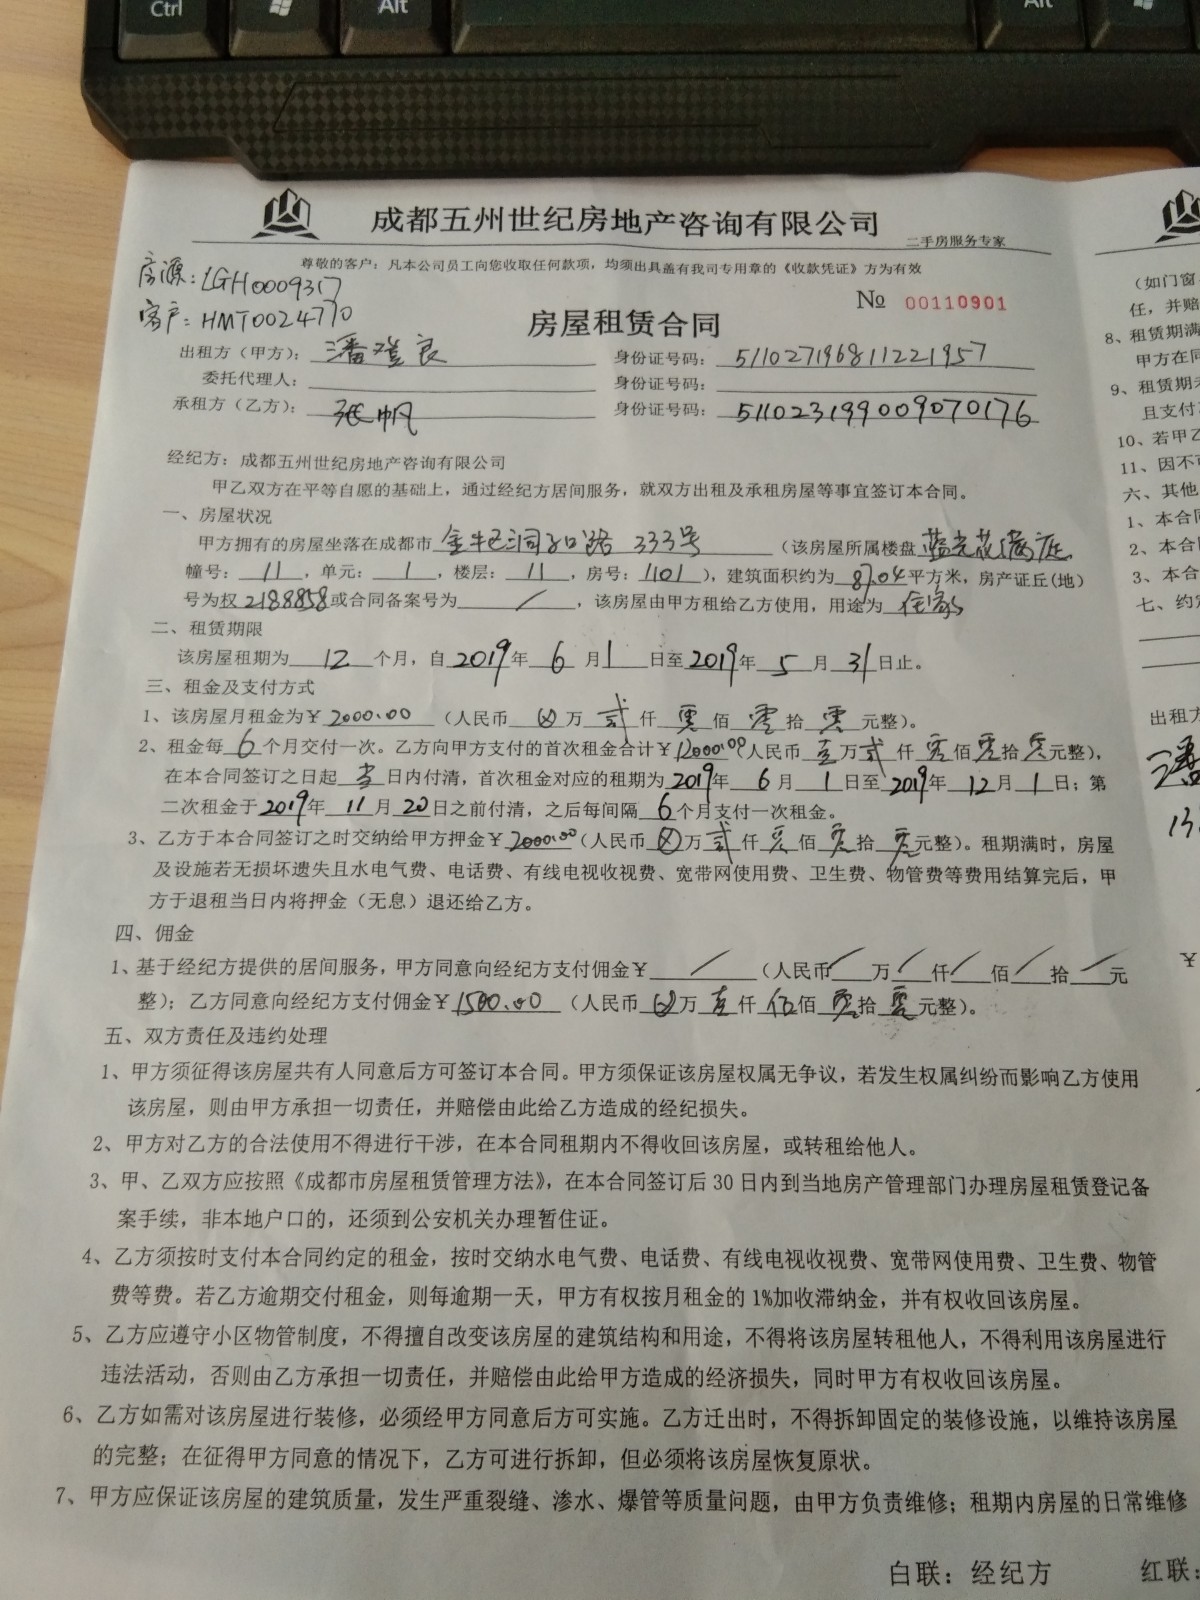 Ctrl
Alt
Alt
成都五州世纪房地产咨询有限公司
二手房服务专家
尊敬的客户：凡本公司员工向您收取任何款项，均须出具盖有我司专用章的《收款凭证》方为有效
房源：LGH0009317
客户：HMT0024770
№ 00110901
房屋租赁合同
出租方（甲方）：潘登良 身份证号码：511027196811221957
委托代理人： 身份证号码：
承租方（乙方）：张帆 身份证号码：511023199009070176
经纪方：成都五州世纪房地产咨询有限公司
甲乙双方在平等自愿的基础上，通过经纪方居间服务，就双方出租及承租房屋等事宜签订本合同。
一、房屋状况
甲方拥有的房屋坐落在成都市 金牛区洞子口路 333号 （该房屋所属楼盘 蓝光花满庭
幢号：11，单元：1，楼层：11，房号：1101），建筑面积约为 87.04 平方米，房产证丘(地)
号为权 2188858 或合同备案号为 / ，该房屋由甲方租给乙方使用，用途为 住家
二、租赁期限
该房屋租期为 12 个月，自 2019 年 6 月 1 日至 2019 年 5 月 31 日止。
三、租金及支付方式
1、该房屋月租金为￥2000.00（人民币 ⊗ 万 贰 仟 零 佰 零 拾 零 元整）。
2、租金每 6 个月交付一次。乙方向甲方支付的首次租金合计￥12000.00（人民币 壹 万 贰 仟 零 佰 零 拾 零 元整），
在本合同签订之日起 当 日内付清，首次租金对应的租期为 2019 年 6 月 1 日至 2019 年 12 月 1 日；第
二次租金于 2019 年 11 月 20 日之前付清，之后每间隔 6 个月支付一次租金。
3、乙方于本合同签订之时交纳给甲方押金￥2000.00（人民币 ⊗ 万 贰 仟 零 佰 零 拾 零 元整）。租期满时，房屋
及设施若无损坏遗失且水电气费、电话费、有线电视收视费、宽带网使用费、卫生费、物管费等费用结算完后，甲
方于退租当日内将押金（无息）退还给乙方。
四、佣金
1、基于经纪方提供的居间服务，甲方同意向经纪方支付佣金￥ / （人民币 / 万 / 仟 / 佰 / 拾 / 元
整）；乙方同意向经纪方支付佣金￥1500.00（人民币 ⊗ 万 壹 仟 伍 佰 零 拾 零 元整）。
五、双方责任及违约处理
1、甲方须征得该房屋共有人同意后方可签订本合同。甲方须保证该房屋权属无争议，若发生权属纠纷而影响乙方使用
该房屋，则由甲方承担一切责任，并赔偿由此给乙方造成的经纪损失。
2、甲方对乙方的合法使用不得进行干涉，在本合同租期内不得收回该房屋，或转租给他人。
3、甲、乙双方应按照《成都市房屋租赁管理方法》，在本合同签订后 30 日内到当地房产管理部门办理房屋租赁登记备
案手续，非本地户口的，还须到公安机关办理暂住证。
4、乙方须按时支付本合同约定的租金，按时交纳水电气费、电话费、有线电视收视费、宽带网使用费、卫生费、物管
费等费。若乙方逾期交付租金，则每逾期一天，甲方有权按月租金的 1%加收滞纳金，并有权收回该房屋。
5、乙方应遵守小区物管制度，不得擅自改变该房屋的建筑结构和用途，不得将该房屋转租他人，不得利用该房屋进行
违法活动，否则由乙方承担一切责任，并赔偿由此给甲方造成的经济损失，同时甲方有权收回该房屋。
6、乙方如需对该房屋进行装修，必须经甲方同意后方可实施。乙方迁出时，不得拆卸固定的装修设施，以维持该房屋
的完整；在征得甲方同意的情况下，乙方可进行拆卸，但必须将该房屋恢复原状。
7、甲方应保证该房屋的建筑质量，发生严重裂缝、渗水、爆管等质量问题，由甲方负责维修；租期内房屋的日常维修
白联：经纪方
红联：
（如门窗
任，并赔
8、租赁期满
甲方在同
9、租赁期
且支付
10、若甲乙
11、因不可
六、其他
1、本合同
2、本合
3、本合
七、约定
出租方
潘
13
￥